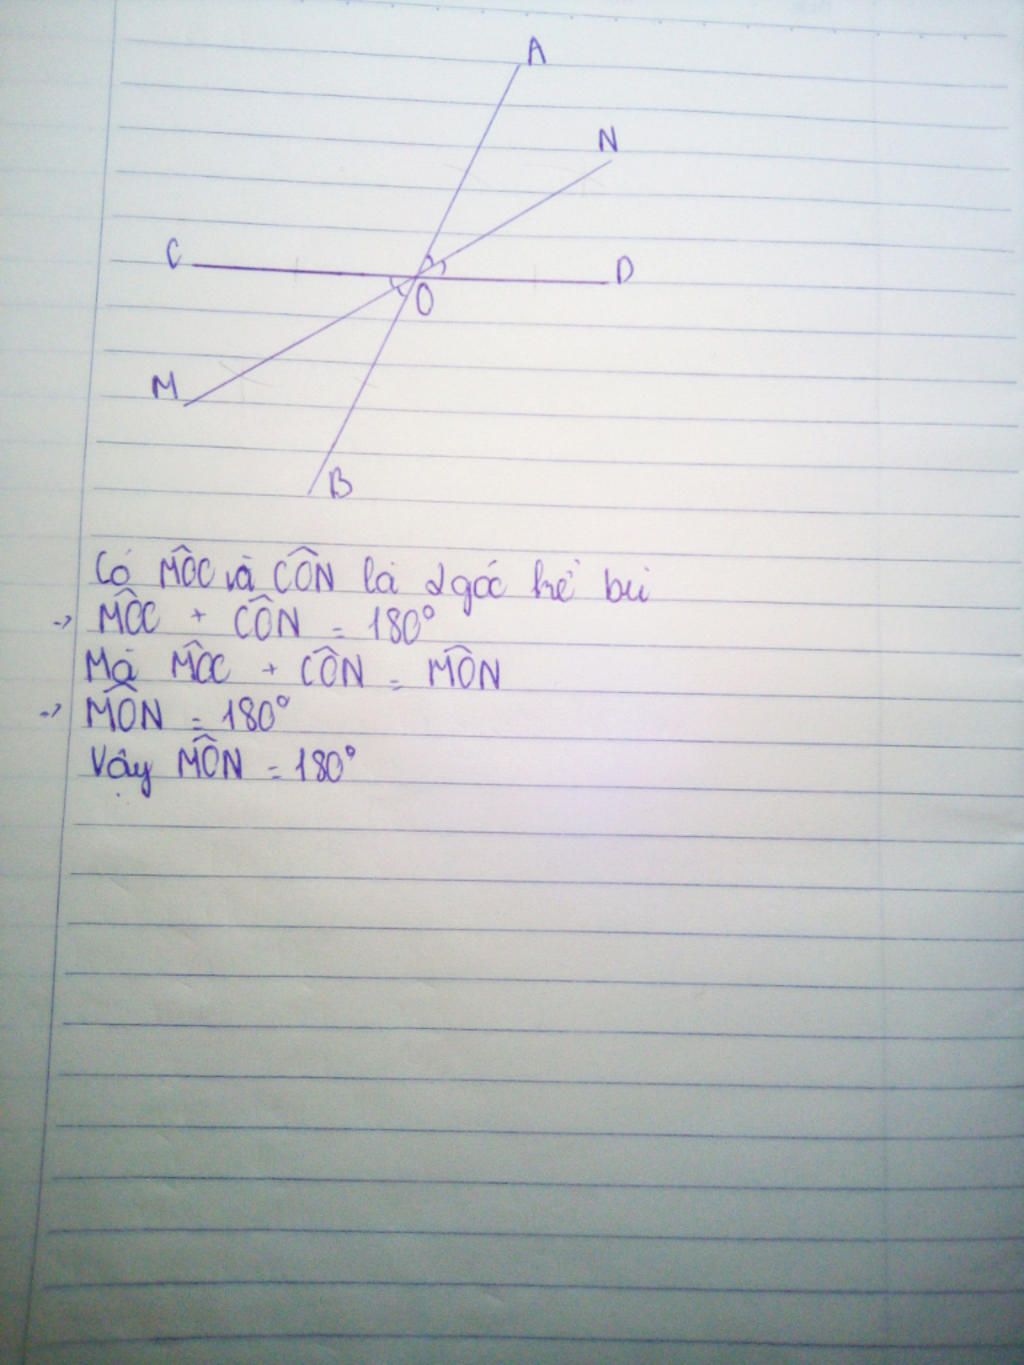 A
N
C
D
O
M
B
Có MÔC và CÔN là 2 góc kề bù
-> MÔC + CÔN = 180°
Mà MÔC + CÔN = MÔN
-> MÔN = 180°
Vậy MÔN = 180°